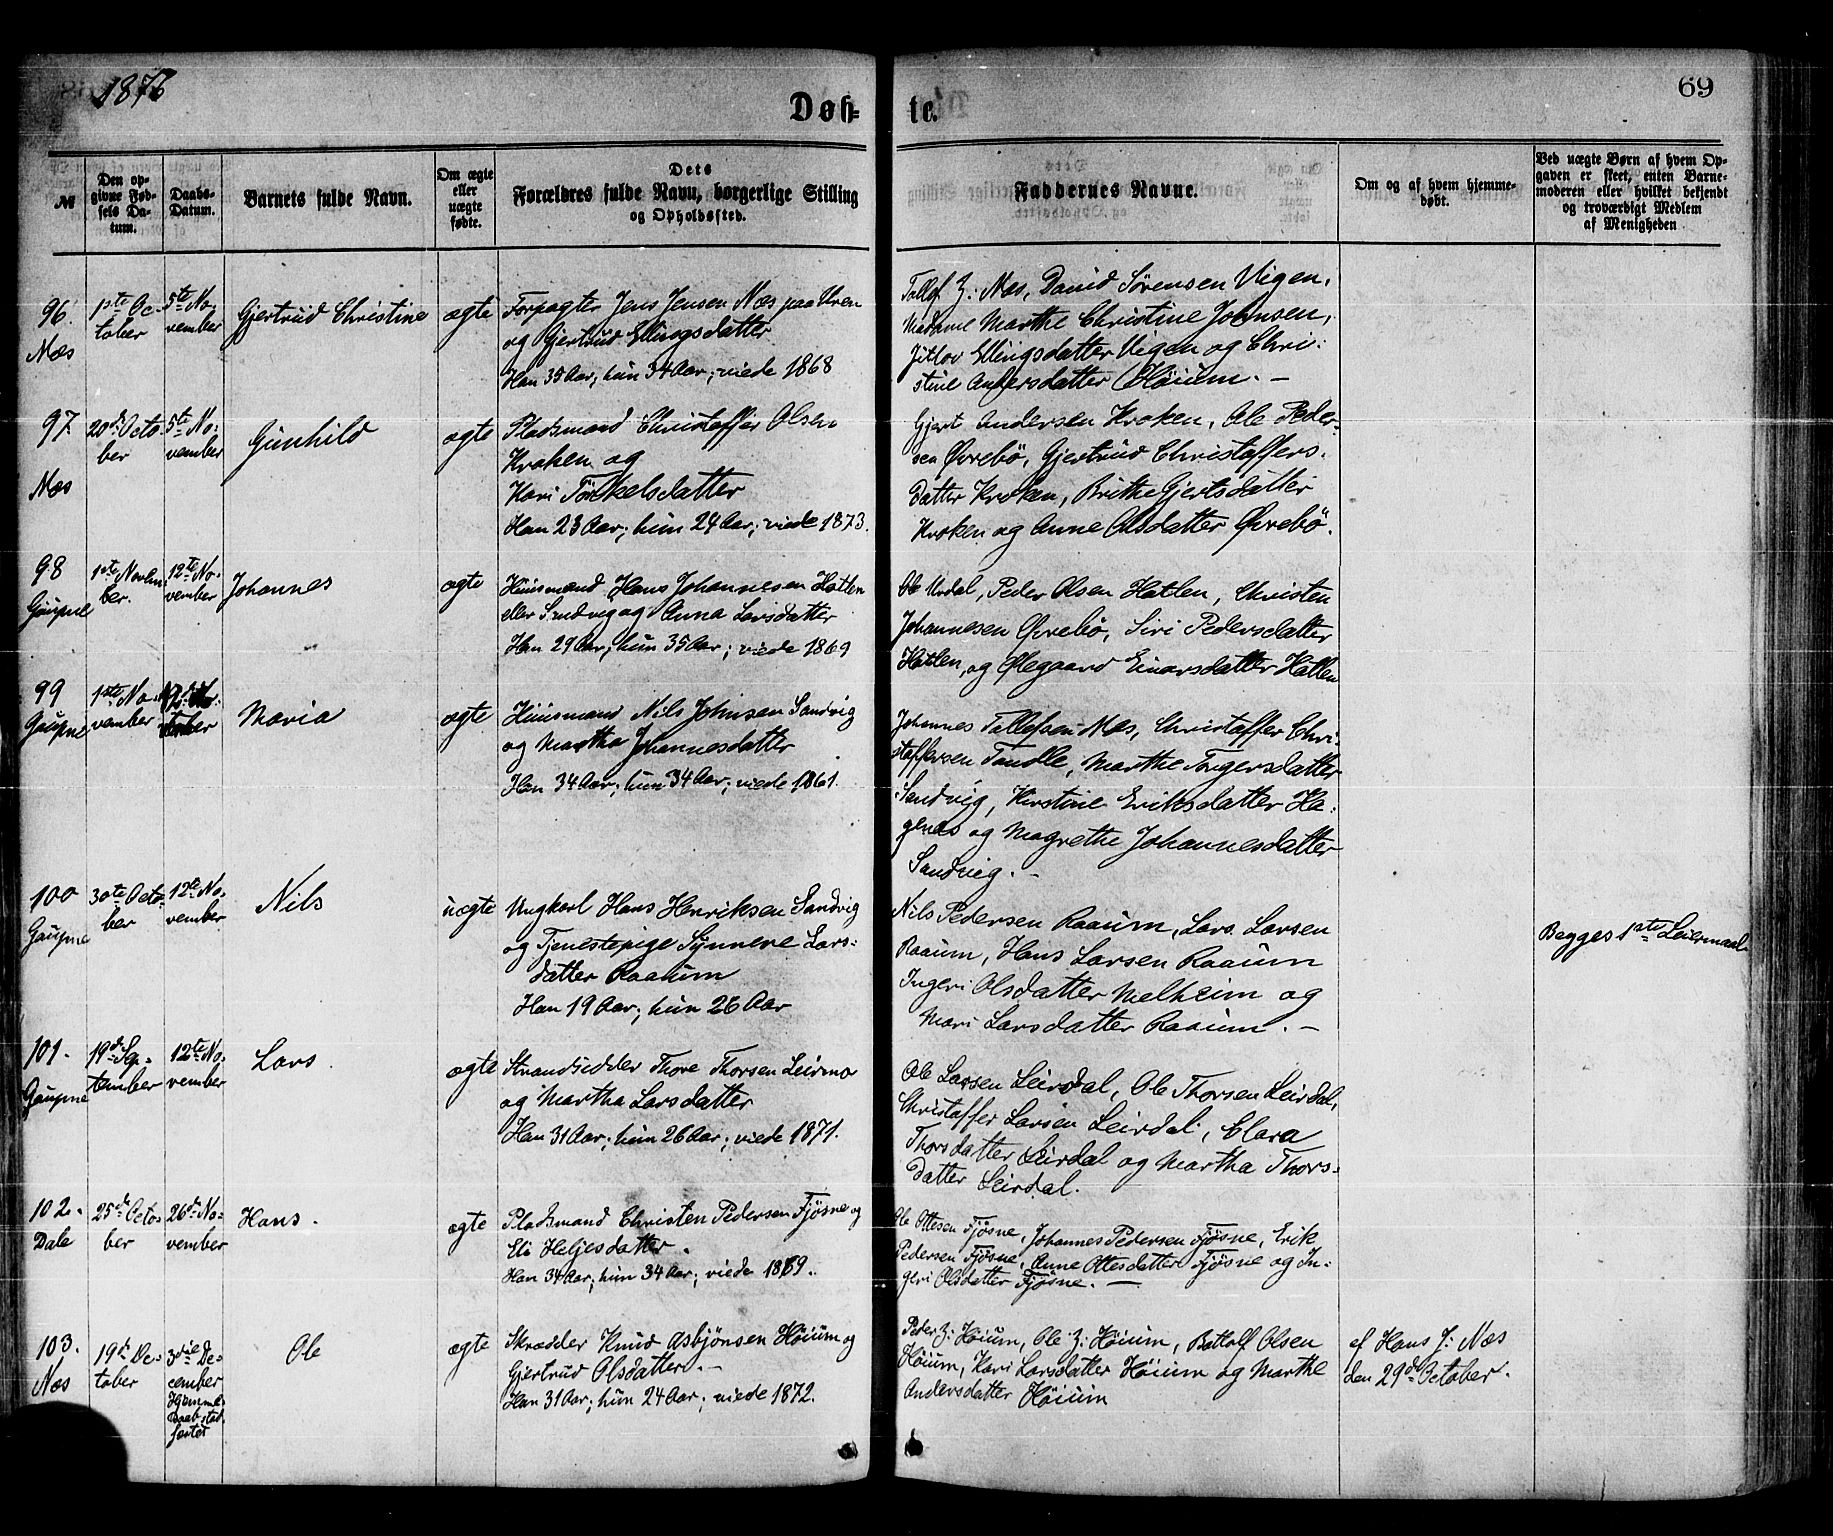 1876
Døb-
te.
69
№
Den op-
givne Fød-
sels Da-
tum.
Daabs-
Datum.
Barnets fulde Navn.
Om ægte
eller
uægte
fødte.
Dets
Forældres fulde Navn, borgerlige Stilling
og Opholdssted.
Faddernes Navne.
Om og af hvem hjemme-
døbt.
Ved uægte Børn af hvem Op-
gaven er skeet, enten Barne-
moderen eller hvilket bekjendt
og troværdigt Medlem
af Menigheden
96.
Næs
1ste Oc-
tober
5te No-
vember
Gjertrud Christine
ægte
Forpagter Jens Jensen Næs paa Uren
og Gjertrud Ellingsdatter
Han 35 Aar; hun 34 Aar; viede 1868
Tollef J: Næs, David Sørensen Vigen,
Madame Marthe Christine Johnsen,
Ellingsdatter Vigen og Chri-
stine Andersdatter Høium. –
97.
Næs
20de Octo-
ber
5te No-
vember
Gunhild
ægte
Pladsmand Christaffer Olsen
Kroken og
Kari Tørkelsdatter
Han 23 Aar; hun 24 Aar; viede 1873.
Gjert Andersen Kroken, Ole Peder-
sen Øvrebö, Gjertrud Christaffers-
datter Kroken, Brithe Gjertsdatter
Kroken og Anne Olsdatter Øvrebö.
98
Gaupne
1ste Novem-
ber.
12te No-
vember
Johannes
ægte
Huusmand Hans Johannesen Hatlen
eller Sandvig og Anna Larsdatter
Han 29 Aar; hun 35 Aar; viede 1869
Ole Urdal, Peder Olsen Hatlen, Christen
Johannesen Øvrebö, Siri Pedersdatter
Hatlen, og Ølegaard Einarsdatter Hatlen
99
Gaupne
1ste No-
vember
Maria
ægte
Huusmand Nils Johnsen Sandvig
og Martha Johannesdatter
Han 34 Aar; hun 34 Aar; viede 1861.
Johannes Tollefsen Næs, Christaffer Chri-
staffersen Tandle, Marthe Tongersdatter
Sandvig, Kirstine Eriksdatter Ha-
genæs og Magrethe Johannesdatter
Sandvig. –
100
Gaupne
30te Octo-
ber
12te No-
vember
Nils
uægte
Ungkarl Hans Henriksen Sandvig
og Tjenestepige Synneve Lars-
datter Raaum
Han 19 Aar; hun 26 Aar
Nils Pedersen Raaum, Lars Larsen
Raaum, Hans Larsen Raaum
Ingeri Olsdatter Melheim og
Mari Larsdatter Raaum. –
Begges 1ste Leiermaal
101.
Gaupne
19de Sep-
tember
12te No-
vember
Lars.
ægte
Strandsidder Thore Thorsen Leirmo
og Martha Larsdatter
Han 31 Aar; hun 26 Aar; viede 1871.
Ole Larsen Leirdal, Ole Thorsen Leirdal,
Christaffer Larsen Leirdal, Clara
Thorsdatter Leirdal og Martha Thors-
datter Leirdal.
102.
Dale
25de Octo-
ber
26de No-
vember
Hans.
ægte
Pladsmand Christen Pedersen Fjøsne og
Eli Heljesdatter.
Han 34 Aar; hun 34 Aar; viede 1869.
Ole Ottesen Fjøsne, Johannes Pedersen Fjøsne, Erik
Pedersen Fjøsne, Anne Ottesdatter Fjøsne og In-
geri Olsdatter Fjøsne. –
103.
Næs
19de Oc-
tober
3die De-
cember
Hjemme-
Daab stad-
fæstet
Ole
ægte
Skrædder Knud Asbjönsen Höium og
Gjertrud Olsdatter. –
Han 31 Aar; hun 24 Aar; viede 1872.
Peder J: Höium, Ole J: Höium, Bottolf Olsen
Höium, Kari Larsdatter Höium og Marthe
Andersdatter Höium
af Hans J: Næs
den 29de October.